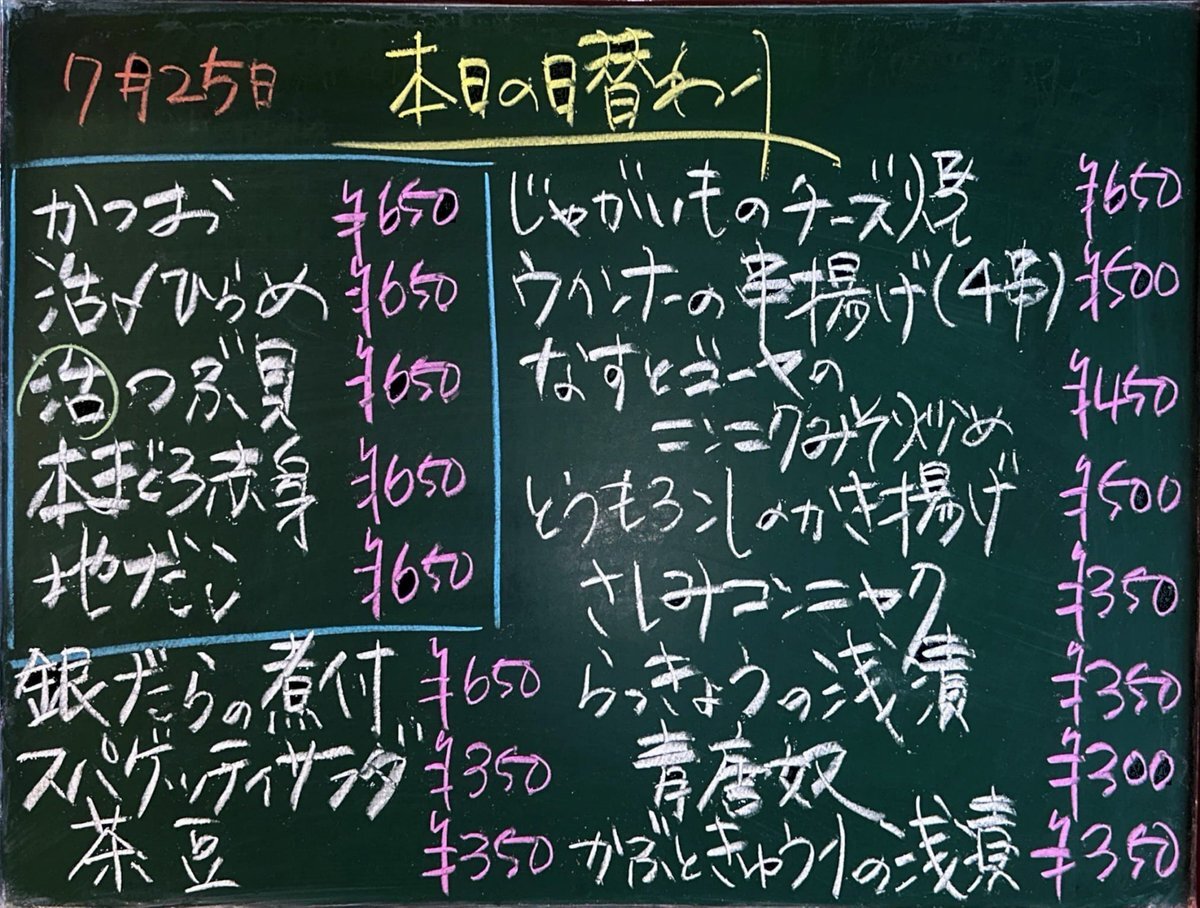 7月25日
本日の日替わり
かつお ¥650
活〆ひらめ ¥650
活つぶ貝 ¥650
本まぐろ赤身 ¥650
地だい ¥650
銀だらの煮付 ¥650
スパゲッティサラダ ¥350
茶豆 ¥350
じゃがいものチーズ焼 ¥650
ウインナーの串揚げ(4串) ¥500
なすとゴーヤの
ニンニクみそ炒め ¥450
とうもろこしのかき揚げ ¥500
さしみコンニャク ¥350
らっきょうの浅漬 ¥350
青唐奴 ¥300
かぶときゅうりの浅漬 ¥350